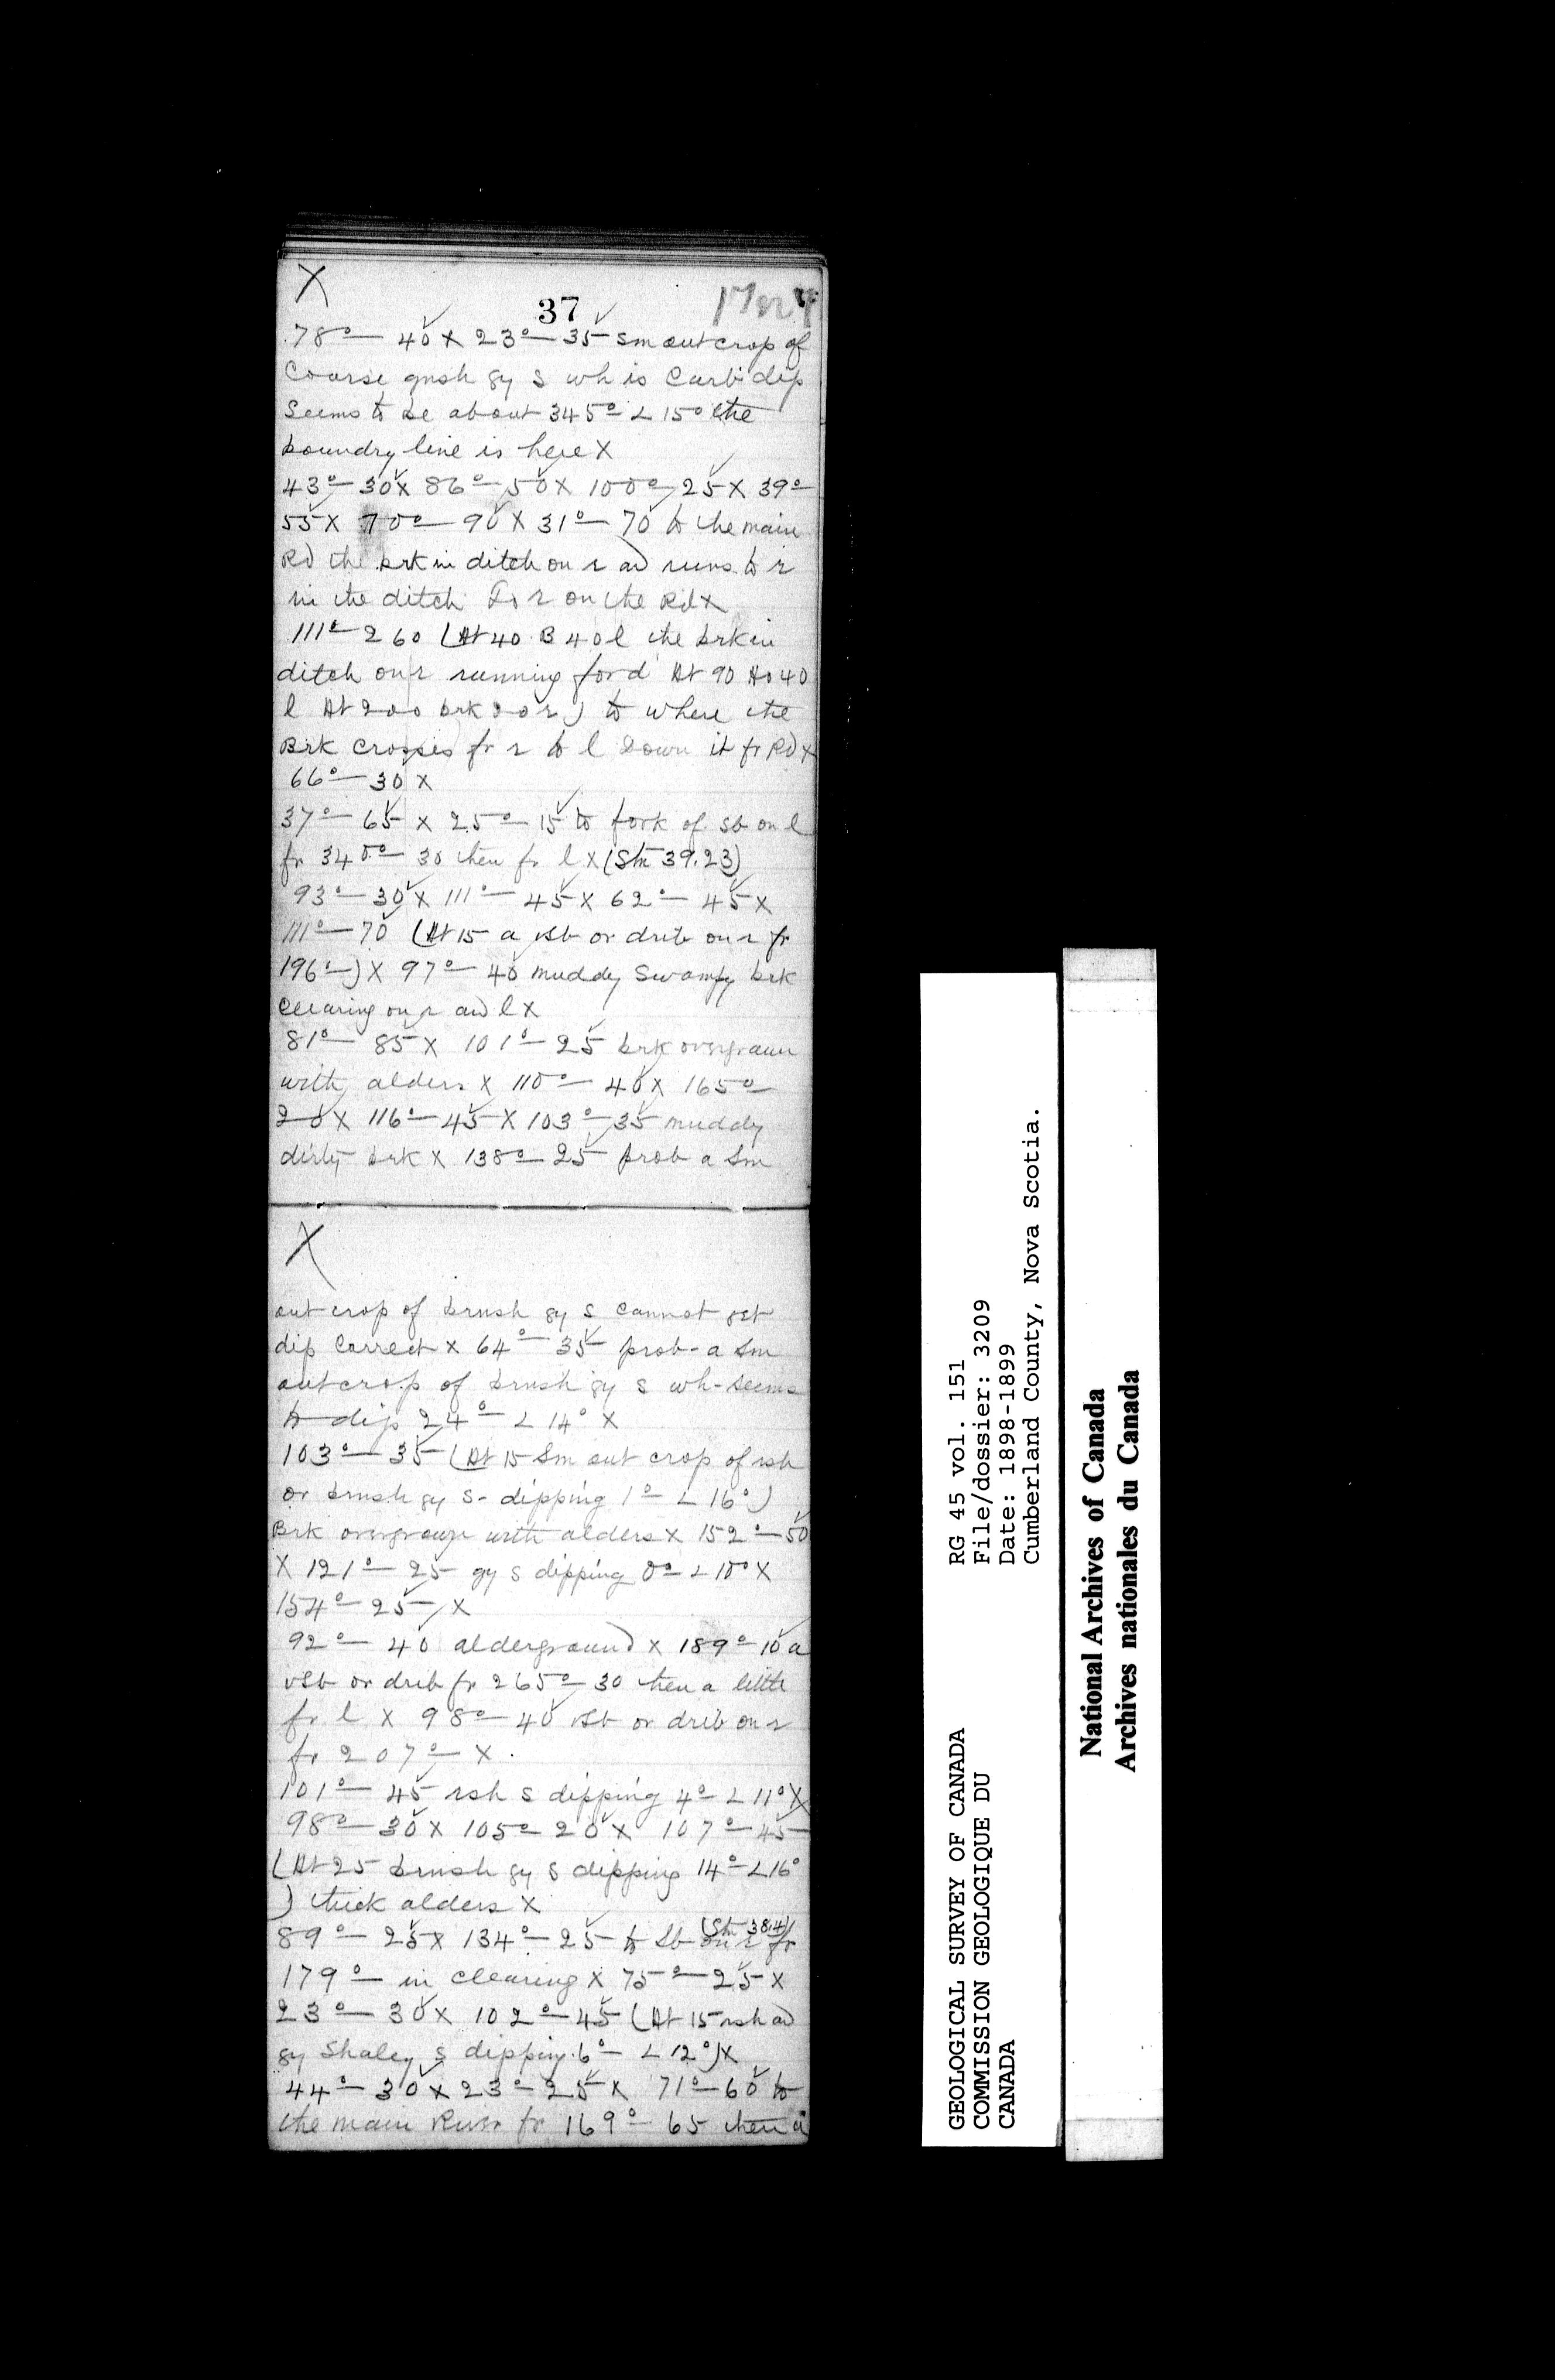 X
37
78° — 40 X 23° — 35 sm outcrop of
Coarse gnsh gy s wh is Carb dip
Seems to be about 345° — L 15° the
boundry line is here X
43° — 30 X 86° — 50 X 100° — 25 X 39° —
55 X 70° — 90 X 31° — 70 to the main
Rd the brk in ditch on r and runs to r
in the ditch to r on the Rd X
111° — 260 (At 40 B 40 l the brk in
ditch on r running for d At 90 Ho 40
l At 200 brk 20 r) to where the
Brk crosses fr r to l Down it fr Rd X
66° — 30 X
37° — 65 X 25° — 15 to fork of sb on l
fr 340° — 30 then fr l X (Stn 39.23)
93° — 30 X 111° — 45 X 62° — 45 X
111° — 70 (At 15 a vsb or drib on r fr
196° —) X 97° — 40 muddy Swampy brk
Clearing on r and l X
81° — 85 X 101° — 25 brk overgrown
with alders X 110° — 40 X 165° —
20 X 116° — 45 X 103° — 35 muddy
dirty brk X 138° — 25 prob a Sm
X
out crop of brnsh gy s cannot get
dip Correct X 64° — 35 prob - a Sm
outcrop of brnsh gy s wh - seems
to dip 24° — L 14° X
103° — 35 (At 15 Sm out crop of rsh
or brnsh gy s - dipping 1° — L 16°)
Brk overgrown with alders X 152° — 50
X 121° — 25 gy s dipping 0° — L 10° X
154° — 25 X
92° — 40 alderground X 189° — 10 a
vsb or drib fr 265° — 30 then a little
fr l X 98° — 40 vsb or drib on r
fr 207° — X
101° — 45 rsh s dipping 4° — L 11° X
98° — 30 X 105° — 20 X 107° — 45
(At 25 brnsh gy s dipping 14° — L 16°
) thick alders X
(Stn 38.4)
89° — 25 X 134° — 25 to Sb on r fr
179° — in clearing X 75° — 25 X
23° — 30 X 102° — 45 (At 15 rsh and
gy Shaley s dipping 6° — L 12°) X
44° — 30 X 23° — 25 X 71° — 60 to
the main River fr 169° — 65 then a
GEOLOGICAL SURVEY OF CANADA
COMMISSION GEOLOGIQUE DU
CANADA
RG 45 vol. 151
File/dossier: 3209
Date: 1898-1899
Cumberland County, Nova Scotia.
National Archives of Canada
Archives nationales du Canada